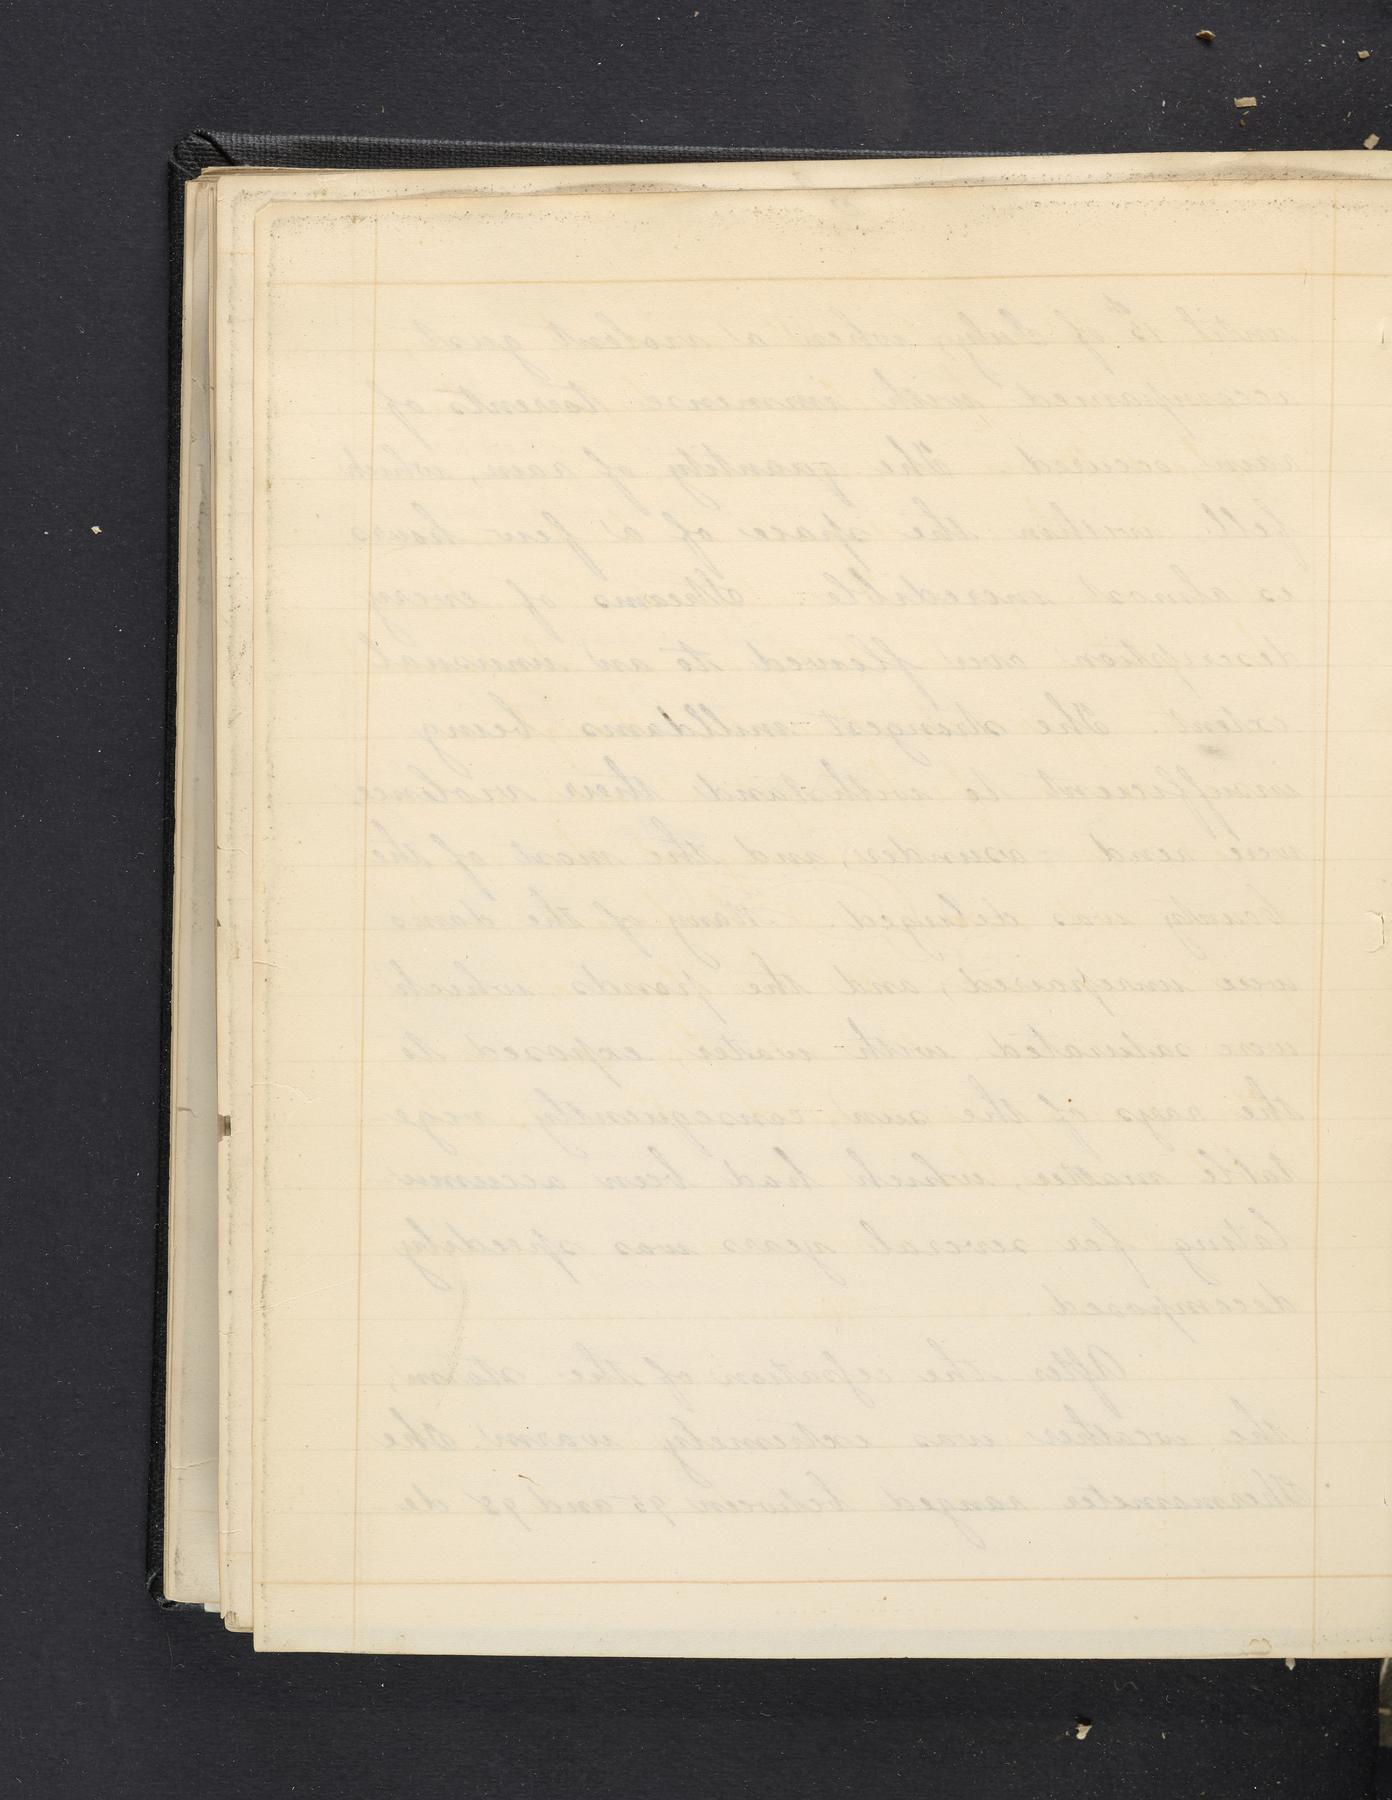 until 15th of July, when a violent gust,
accompanied with immense torrents of
rain occured. The quantity of rain, which
fell within the space of a few hours
is almost incredible. Streams of every
description over flowed to an unusual
extent. The strongest milldams being
insufficient to withstand their violence
were rend asunder, and the most of the
County was deluged. Many of the dams
were unrepaired, and the ponds which
were saturated with water, exposed to
the rays of the sun consequently, vege
table matter, which had been accumu
lating for several years was speedily
decomposed.
After the cessation of the storm,
the weather was extremely warm. The
Thermometer ranged between 95 and 98 de